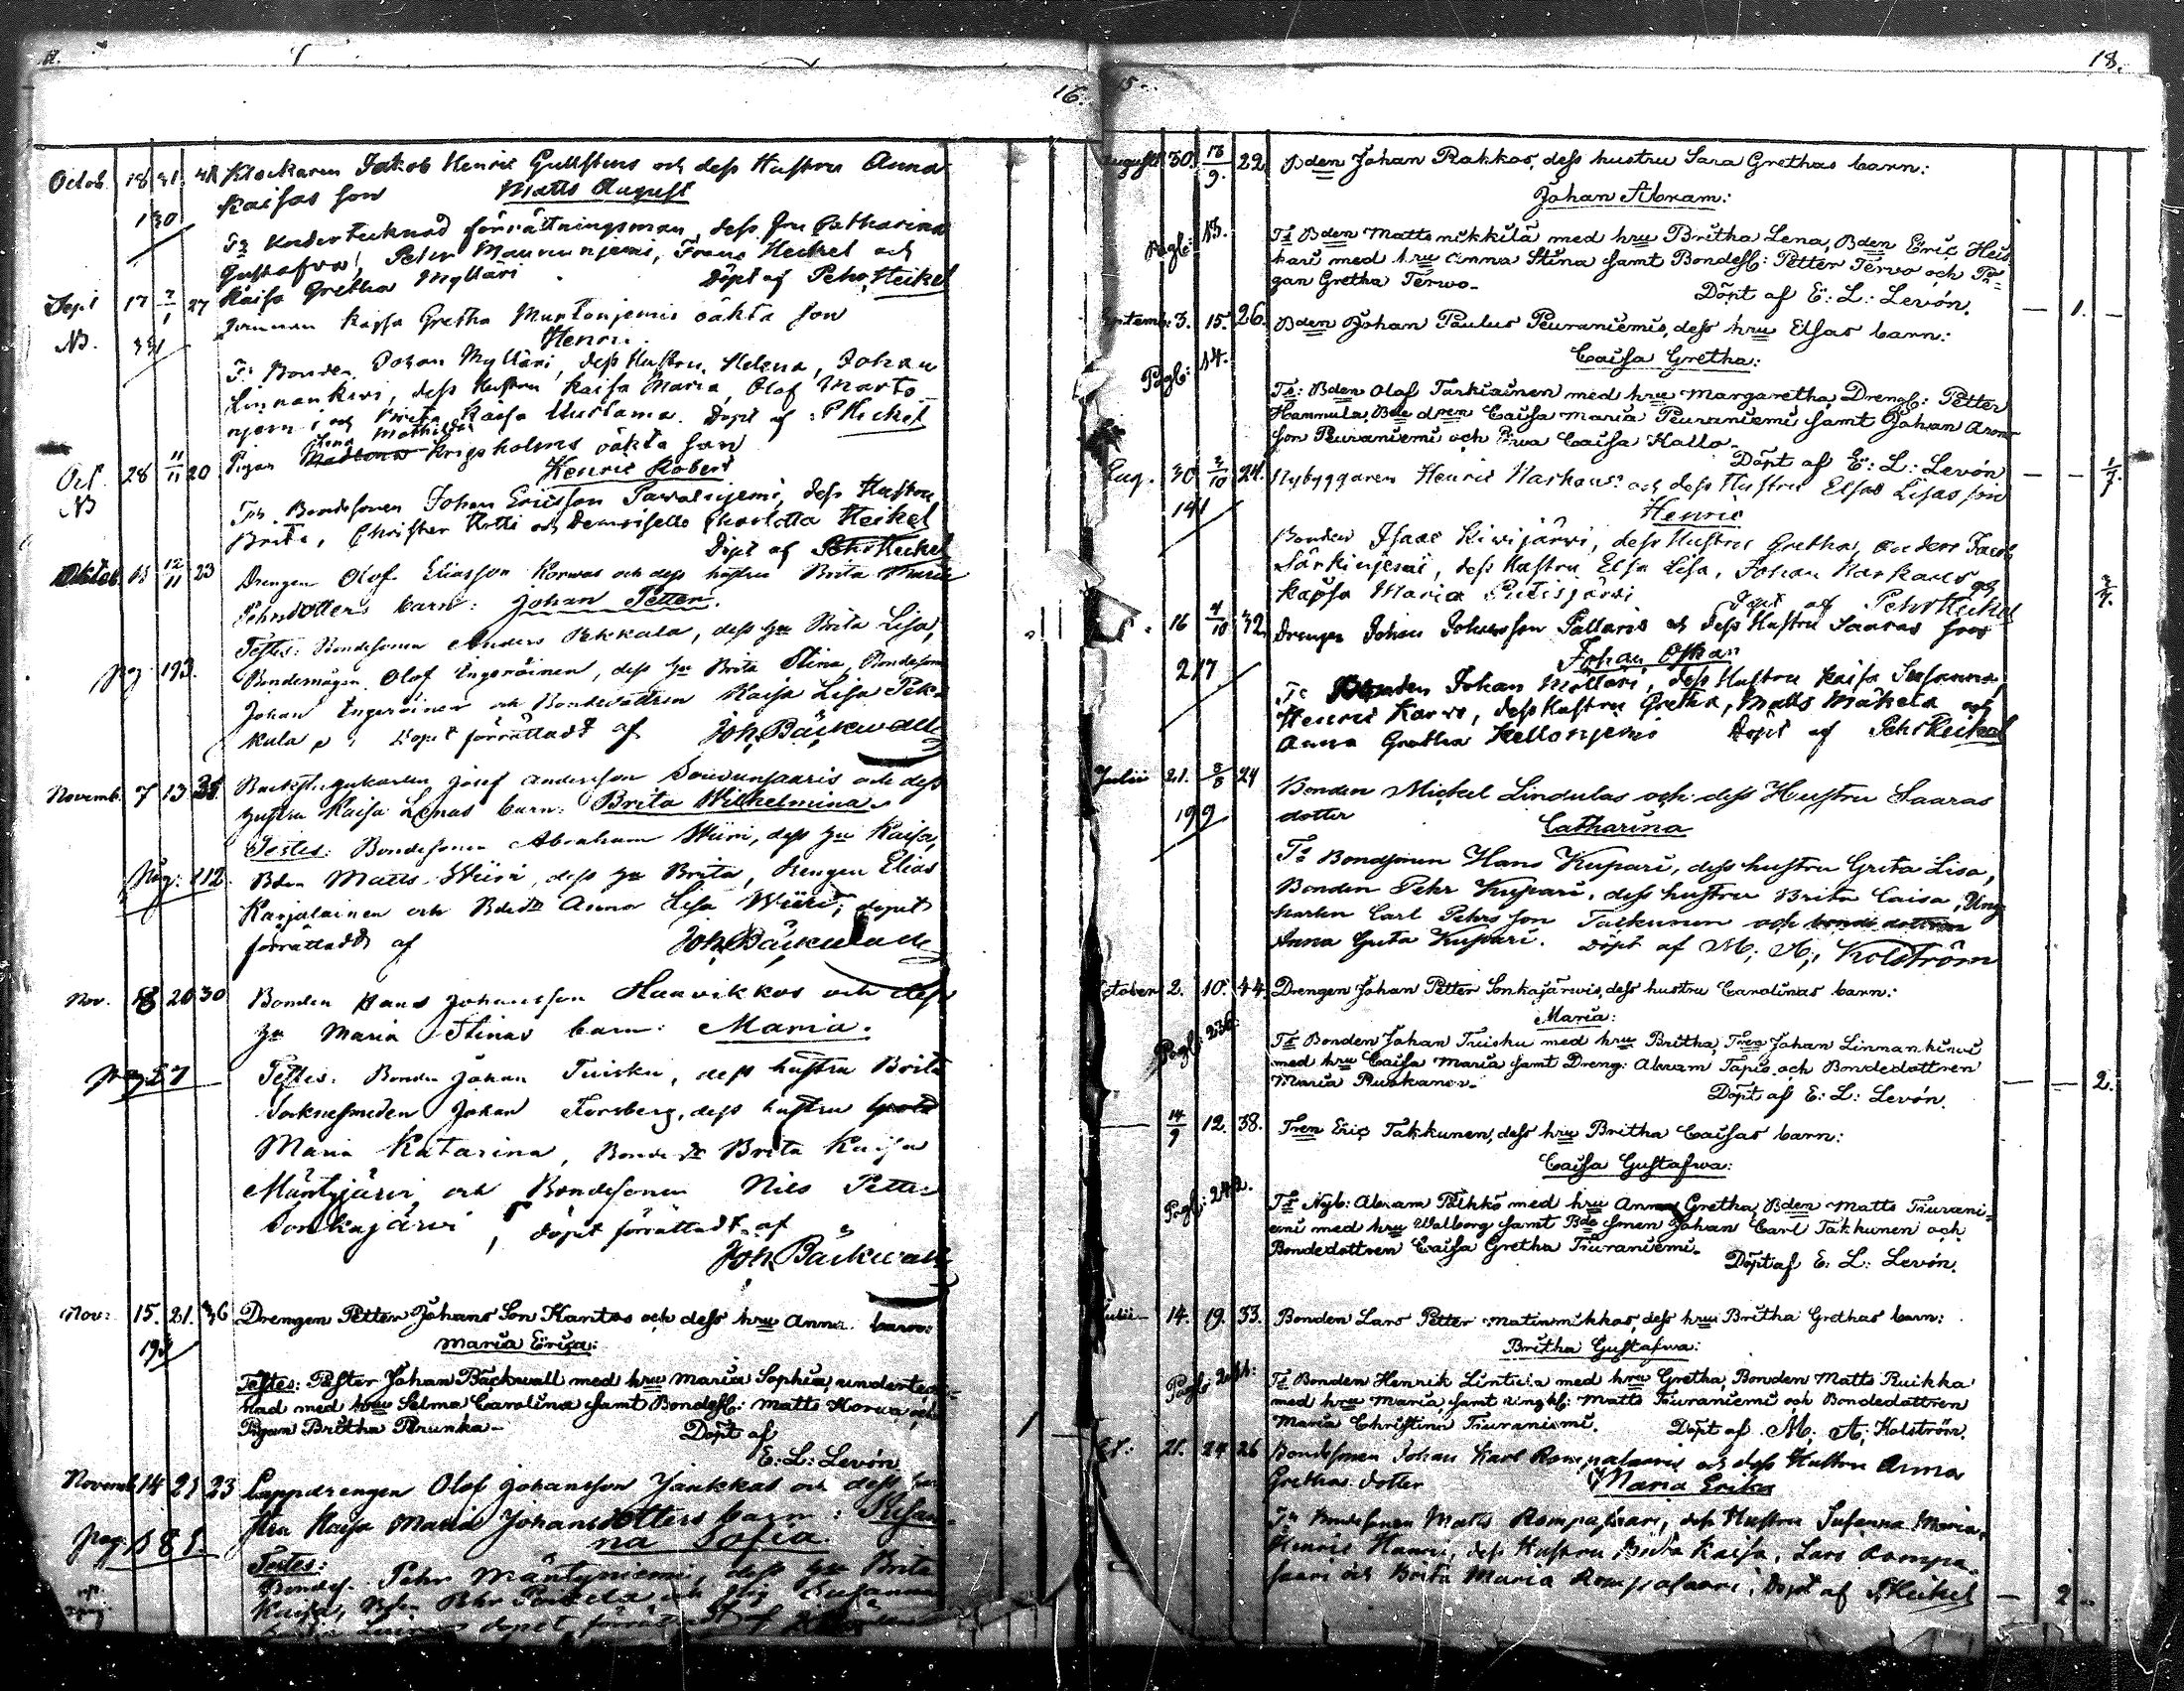 16.
Octob. 18 31. Klockaren Jakob Henric Gullstens och dess Hustru Anna
Kaisas son Matts August
130
Ts Undertecknad förrättningsman, dess fru Catharina
Gustafva, Peter Maununjemi, Frans Heikel och
Kaisa Gretha Mylläri Döpt af Pehr Heikel
Sept 17 27 Kajsa Gretha Murtonjemis oäkta son
NB. Henric
Ts Bonden Johan Mylläri, dess Hustru Helena, Johan
Linnankivi, dess Hustru Kaisa Maria, Olof Marto-
njemi och Kaisa Döpt af P Heikel
Oct. 28 11/11 20 Pigan Lena Mathilda Krigsholms oäkta son
NB Henric Robert
Ts Bondesonen Johan Ericsson Pawalnjemi, dess Hustru
Brita, Christer Kolli och Demoiselle Charlotta Heikel
Döpt af Pehr Heikel
Oktob. 12/11 23 Drengen Olof Eliasson Korwas och dess hustru Brita Maria
Pehrsdotters barn: Johan Petter.
Testes: Bondesonen Anders Pekkala, dess Hu Brita Lisa,
pag. 193. Bondemågen Olof Ingeröinen, dess Hu Brita Stina, Bondesonen
Johan Ingeröinen och Bondedottren Kaisa Lisa Pek-
kala, Döpet förrättadt af Joh. Bäckwall
Novemb. 7 13 35. Backstugukarlen Josef Andersson Souvunsaaris och dess
hustru Kaisa Lenas barn: Brita Wilhelmina
Testes: Bondesonen Abraham Wiiri, dess Hu Kaisa,
Pag: 112. Bden Matts Wiiri, dess Hu Brita, Drengen Elias
Karjalainen och Bdedr Anna Lisa Wiiri; döpet
förrättadt af Joh. Bäckwall
Nov. 18 20 30 Bonden Hans Johansson Haavikkos och dess
Hu Maria Stinas barn: Maria.
pag. 57 Testes: Bonden Johan Tuisku, dess hustru Brita
Socknesmeden Johan Forsberg, dess hustru
Maria Katarina, Bondedr Brita Kaisa
Mäntyjärvi och Bondesonen Nils Petter
Sonkajärvi, döpet förrättadt af
Joh. Bäckwall
Nov: 15. 21. 36 Drengen Petter Johans Son Kantos och dess hru Anna barn:
Maria Erica:
Testes: Pastor Johan Bäckwall med hru Maria Sophia, underteck-
nad med hru Selma Carolina samt Bondess: Matts Korva och
Pigan Britha Perunka- Döpt af
E: L: Levón
Novemb 14 21 23 Lappdrengen Olof Johansson Jänkkäs och dess hu-
stru Kaisa Maria Johansdotters barn: Susan-
Pag. 188. na Sofia
Testes:
Bondes. Pehr Mäntyniemi, dess Hu Brita
Kaisa,
18.
August 30. 13/9. 22. Bden Johan Rakkos, dess hustru Sara Grethas barn:
Johan Abram:
Pagb: 13. Ts Bden Matts Nikkilä med hru Britha Lena, Bden Eric Heis-
kari med hru Anna Stina samt Bondess: Petter Tervo och Pi-
gan Gretha Tervo- Döpt af E: L: Levón. — 1. —
Septemb: 3. 15. 26. Bden Johan Paulus Peuraniemis, dess hru Elsas barn:
Caisa Gretha:
Pagb: 14. Ts: Bden Olof Tarkiainen med hru Margaretha, Drengs: Petter
Hannula, Bde dren Caisa Maria Peuraniemi samt Johan Arons-
son Peuraniemi och Caisa Kallo-
Döpt af E: L: Levón
Aug. 30 2/10 24. Nybyggaren Henric Markaus och dess Hustru Elsas Lisas son
141 Henric
Bonden Isaac Kivijärvi, dess Hustru Gretha, Anders Jacob
Särkinjemi, dess Hustru Elsa Lisa, Johan Karkaus och
Kajsa Maria Putisjärvi Döpt af Pehr Heikel
16 4/10 32 Drengen Johan Johansson Pallaris och dess Hustru Saaras son
217 Johan Oskar
Ts Bonden Johan Möllari, dess Hustru Kaisa Susanna,
Henric Korvo, dess Hustru Gretha, Matts Mäkelä och
Anna Gretha Kellonjemi Döpt af Pehr Heikel
Julii 21. 8/8 24 Bonden Mickel Lindulas och dess Hustru Saaras
199 dotter Catharina
Ts Bondsonen Hans Kupari, dess hustru Greta Lisa,
Bonden Pehr Kupari, dess hustru Brita Caisa, Ung
karlen Carl Pehrsson Takkunen och bondedottren
Anna Greta Kupari. Döpt af M: A: Kolström
October 2. 10. 44. Drengen Johan Petter Sonkajärvis, dess hustru Carolinas barn:
Maria:
Pagb: 236. Ts Bonden Johan Tuisku med hru Britha, Johan Linnankivi
med hru Caisa Maria samt Dreng: Abram Tapio och Bondedottren
Maria Ruokanen- — — 2.
Döpt af E: L: Levón.
14/9 12. 38. Tren Eric Takkunen, dess hru Britha Caisas barn:
Caisa Gustafva:
Pagb: 242. Ts Nyb: Abram Pöikkö med hru Anna Gretha, Bden Matts Tiurani-
emi med hru Walborg samt Bde smen Johan Carl Takkunen och
Bondedottren Caisa Gretha Tiuraniemi-
Döpt af E: L: Levón.
Julii 14. 19. 33. Bonden Lars Petter Matinmikkos, dess hru Britha Grethas barn:
Britha Gustafva:
Pagb: 244: Ts Bonden Henrik Lintula med hru Gretha, Bonden Matts Ruikka
med hru Maria, samt Ungkl: Matts Tiuraniemi och Bondedottren
Maria Christina Tiuraniemi. Döpt af M: A: Kolström.
21. 24 26 Bondesonen Johan Karl Rompasaaris och dess Hustru Anna
Grethas dotter Maria Erika
Ts Bondesonen Matts Rompasaari, dess Hustru Susanna Maria,
Henric Hannu, dess Hustru Brita Kaisa, Lars Rompa-
saari och Brita Maria Rompasaari. Döpt af P Heikel — 2 —